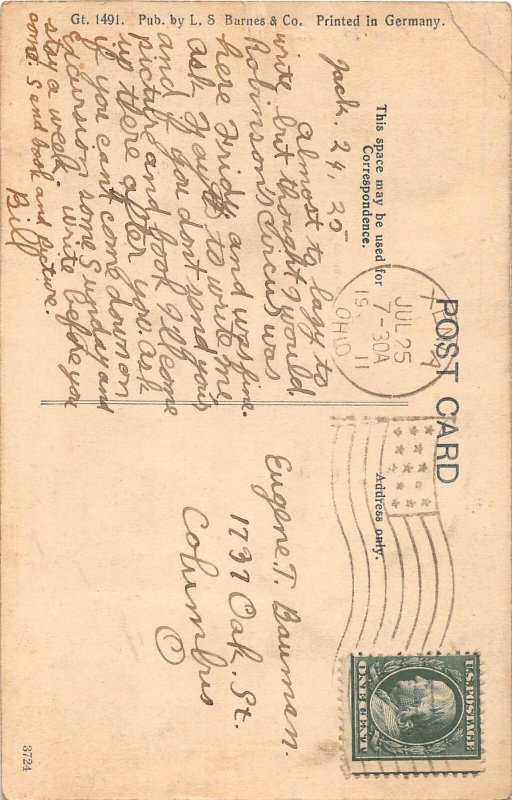 Gt. 1491. Pub. by L. S. Barnes & Co. Printed in Germany.
POST CARD
This space may be used for
Correspondence.
Address only.
JUL 25
7-30A
19 11
OHIO
Jack. 24, 25
almost to lazy to
write but thought I would.
Robinson's Circus was
here Fridy and was fine.
ask Fay to write me
and if you dont send your
picture and book Ill come
up there after you. ask
if you cant come down on
Excursion some Sunday and
stay a week. write before you
come. send book and picture.
Bill
Eugene T. Bauman.
1737 Oak. St.
Columbus
O
U.S. POSTAGE
ONE CENT
3724